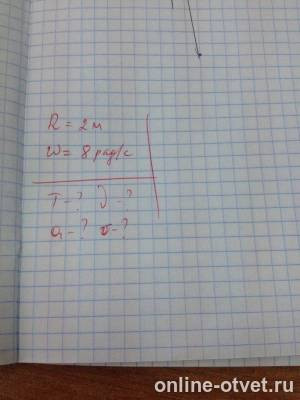 R = 2м
W = 8 рад/с
T - ? ν - ?
a - ? v - ?
online-otvet.ru